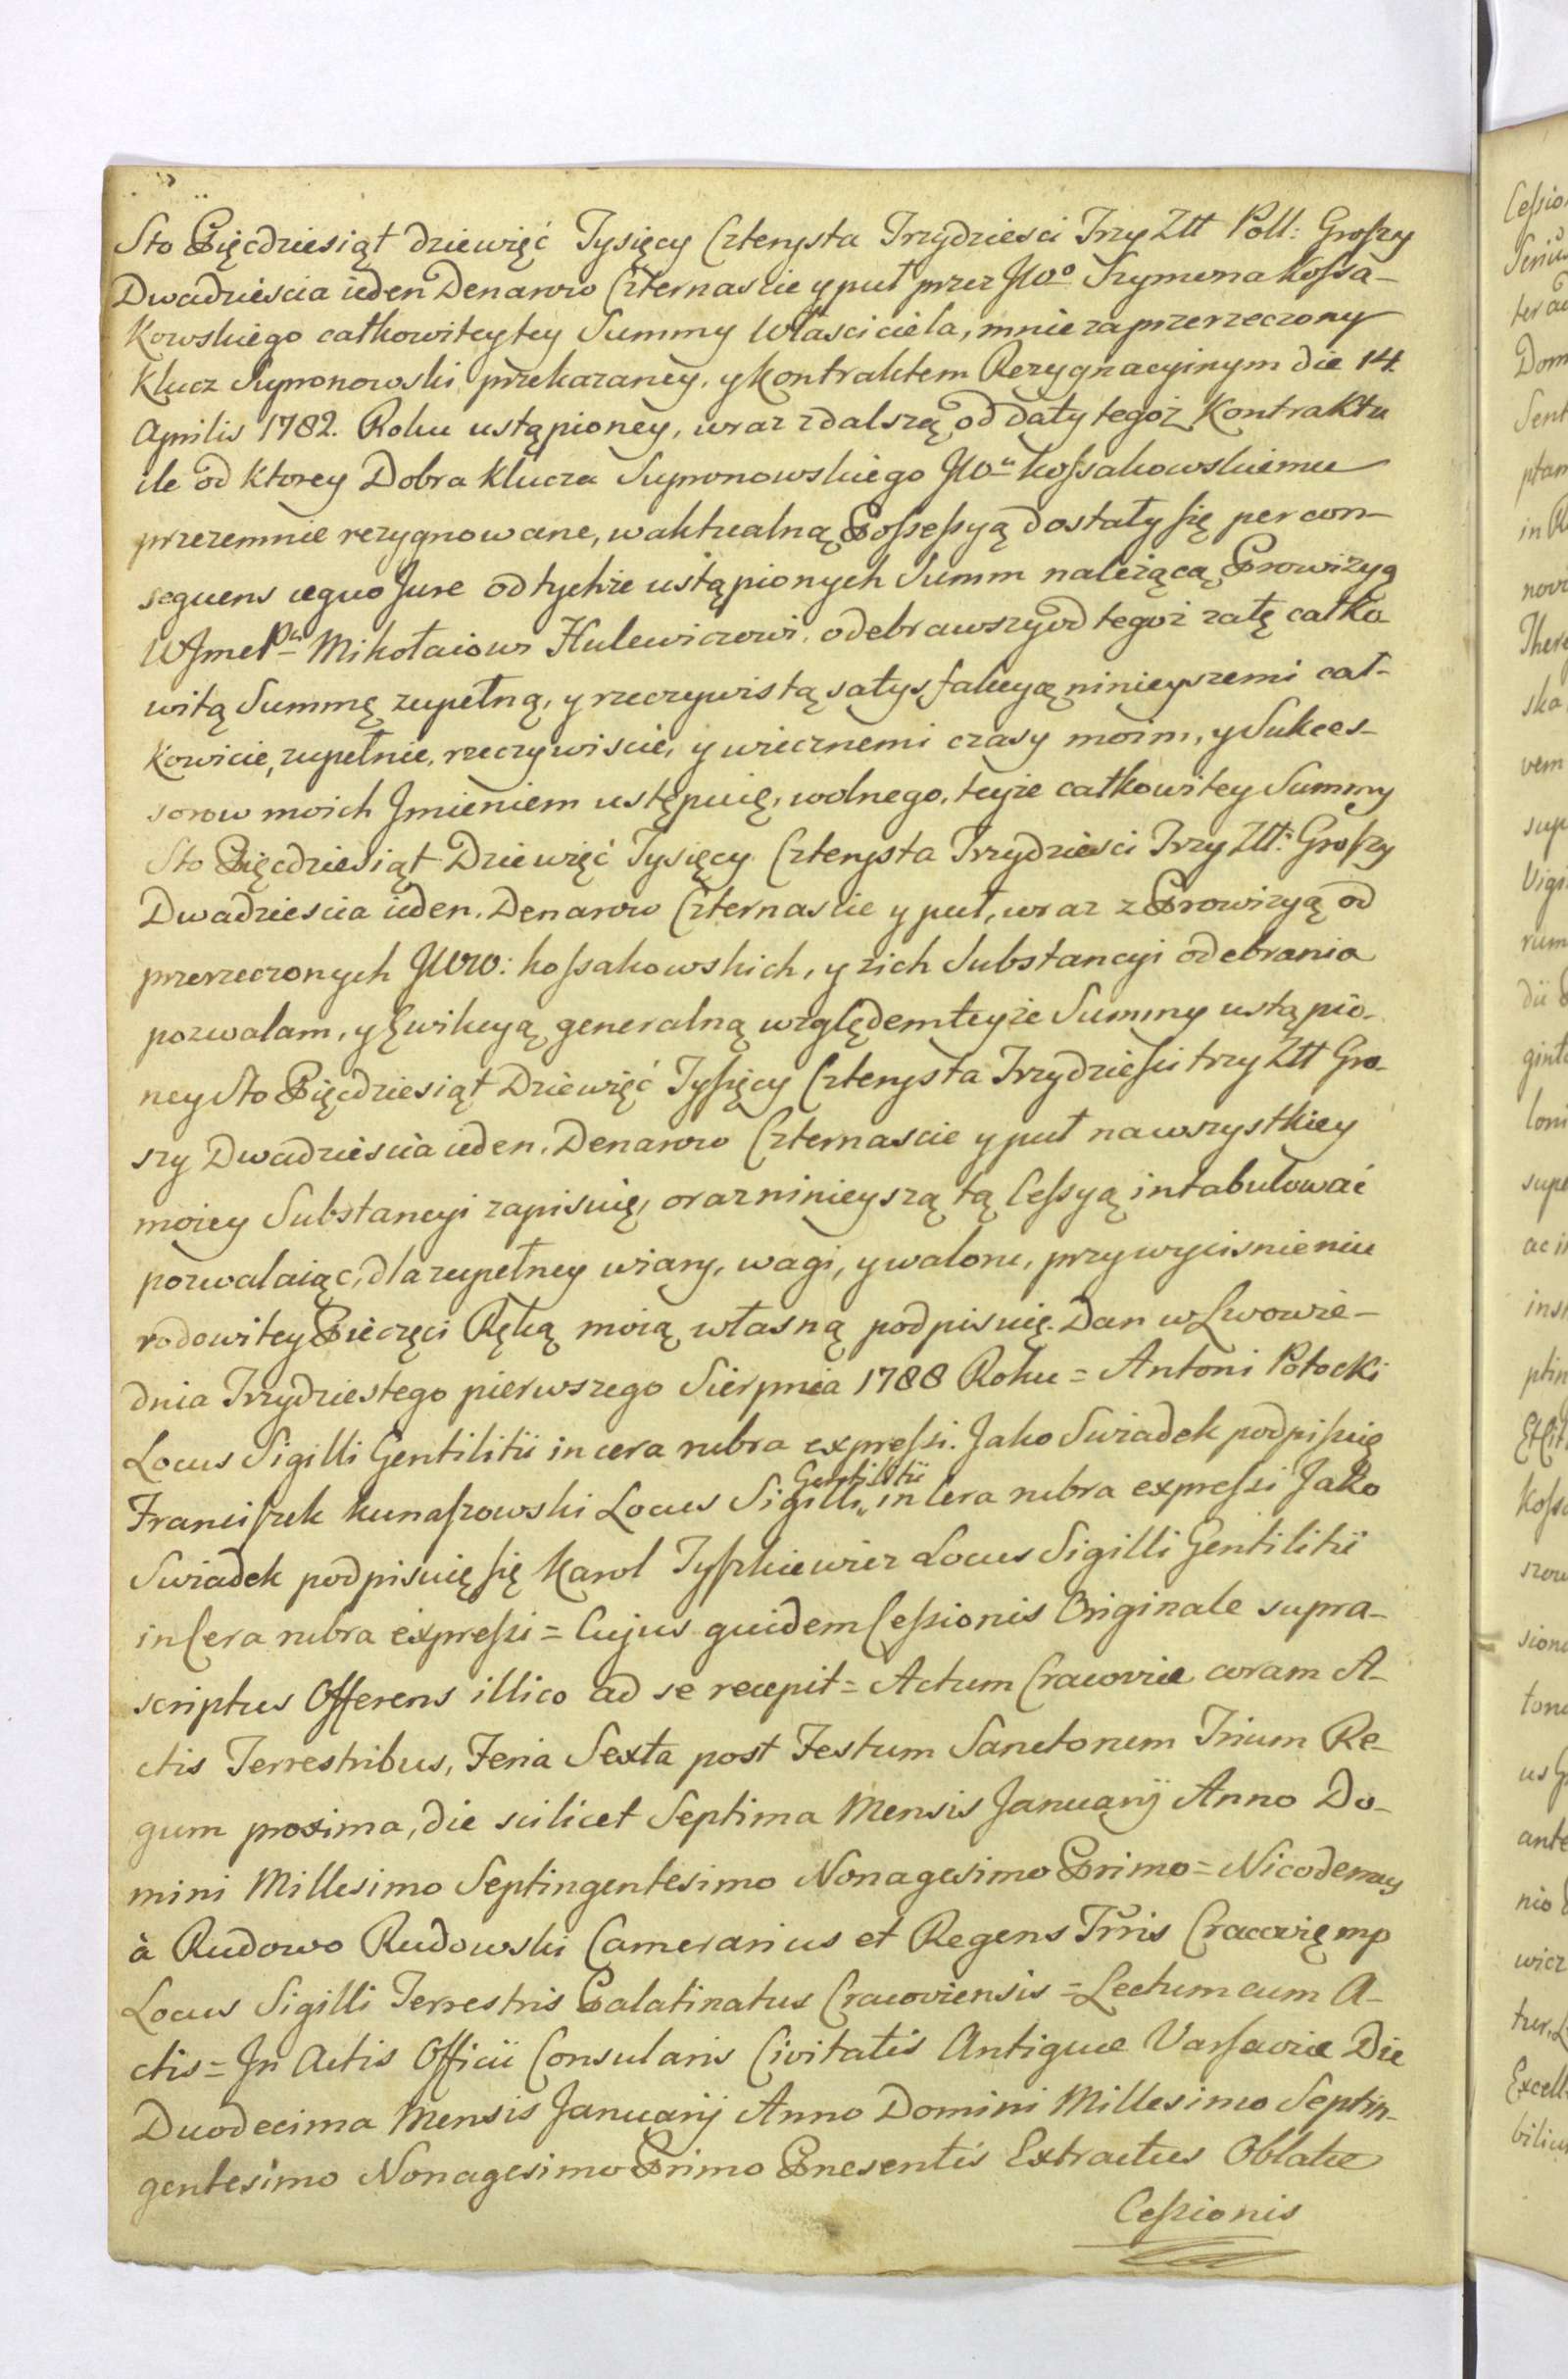 Sto Pięcdziesiąt dziewięć Tysięcy Czterysta Trzydziesci Trzy Złł Poll: Groszy
Dwadziescia ieden Denarow Czternascie y puł przez JWo Szymona Kossa-
kowskiego całkowitey tey Summy Własciciela, mnie za przerzeczony
Klucz Supronowski przekazaney, y Kontraktem Rezygnacyinym die 14
Aprilis 1782. Roku ustąpioney, wraz z dalszą od daty tegoż Kontraktu
ile od ktorey Dobra Klucza Supronowskiego JWu Kossakowskiemu
przezemnie rezygnowane, w aktualną Possessyą dostały się per con-
sequens æquo Jure od tychże ustąpionych Summ należącą Prowizyą
WJmcPu Mikołaiowi Hulewiczowi, odebrawszy od tegoż załę całko
witą Summę zupełną, y rzeczywistą satysfakcyą ninieyszemi cał-
kowicie, zupełnie, rzeczywiscie, y wiecznemi czasy moim, y Sukces-
sorow moich Jmieniem ustępuię, wolnego, teyże całkowitey Summy
Sto Pięcdziesiąt Dziewięć Tysięcy Czterysta Trzydziesci Trzy Złł: Groszy
Dwadziescia ieden. Denarow Czternascie y puł, wraz z Prowizyą od
przerzeczonych JWW: Kossakowskich, y z ich Substancyi odebrania
pozwalam, y Ewikcyą generalną względem teyże Summy ustąpio-
ney Sto Pięcdziesiąt Dziewięć Tysięcy Czterysta Trzydziesci trzy Złł Gro-
szy Dwadziescia ieden. Denarow Czternascie y puł na wszystkiey
moiey Substancyi zapisuię, oraz ninieyszą tą Cessyą intabulować
pozwalaiąc, dla zupełney wiary, wagi, y waloru, przy wycisnieniu
rodowitey Pieczęci Ręką moią własną podpisuię. Dan w Lwowie-
dnia Trzydziestego pierwszego Sierpnia 1788 Roku = Antoni Potocki
Locus Sigilli Gentilitii in cera rubra expressi. Jako Swiadek podpisuię
Franciszek Kunaszowski Locus Sigilli Gentilitii in Cera rubra expressi Jako
Swiadek podpisuię się Karol Tyszkiewicz Locus Sigilli Gentilitii
in Cera rubra expressi = Cujus quidem Cessionis Originale supra-
scriptus Offerens illico ad se recepit = Actum Cracoviæ coram A-
ctis Terrestribus, Feria Sexta post Festum Sanctorum Trium Re-
gum proxima, die scilicet Septima Mensis Januarij Anno Do-
mini Millesimo Septingentesimo Nonagesimo Primo = Nicodemus
à Rudowo Rudowski Camerarius et Regens Trris Cracovię mp
Locus Sigilli Terrestris Palatinatus Cracoviensis = Lectum cum A-
ctis = In Actis Officii Consularis Civitatis Antiquæ Varsaviæ Die
Duodecima Mensis Januarij Anno Domini Millesimo Septin-
gentesimo Nonagesimo Primo Præsentis Extractus Oblatæ
Cessionis